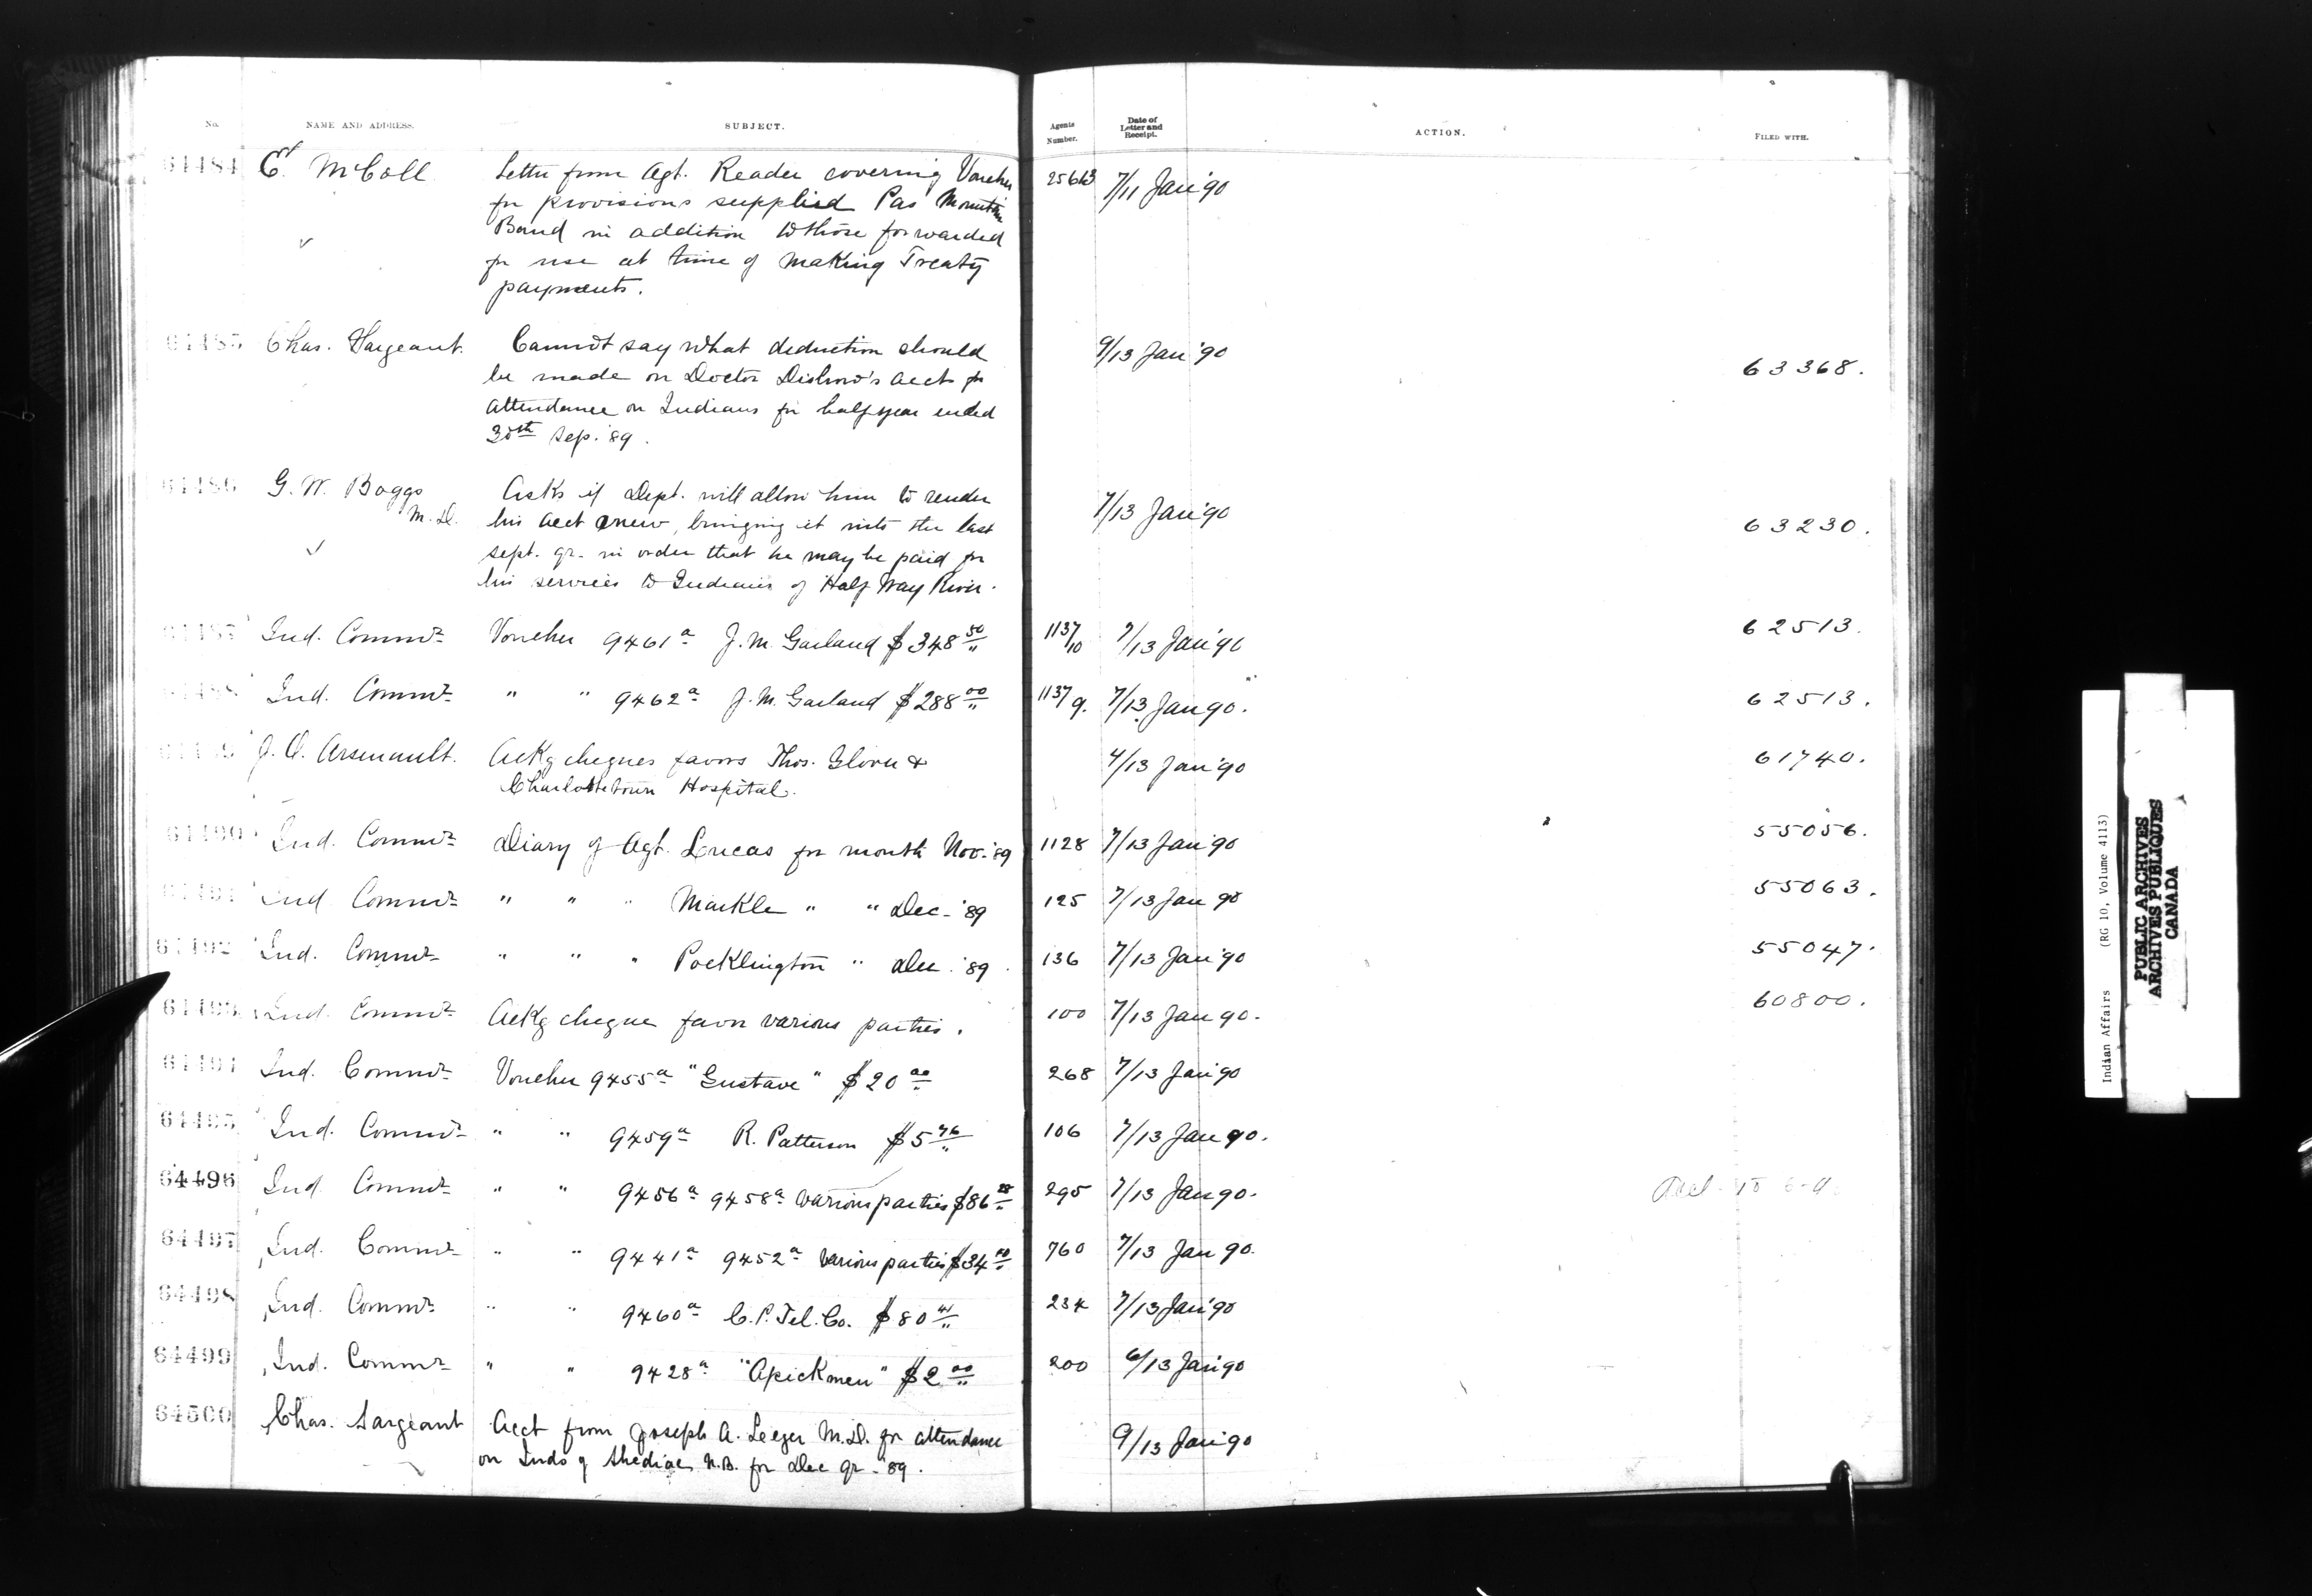 No. NAME AND ADDRESS. SUBJECT. Agents Number. Date of Letter and Receipt. ACTION. FILED WITH.
64484 E. McColl Letter from Agt. Reader covering Voucher 25663 7/11 Jan '90
for provisions supplied Pas Mountain
Band in addition to those forwarded
for use at time of making Treaty
payments.
64485 Chas. Sargeant. Cannot say what deduction should 9/13 Jan '90 63368.
be made on Doctor Disbrow's acct for
attendance on Indians for half year ended
30th Sep. '89.
64486 G. W. Boggs M.D. Asks if Dept. will allow him to render 7/13 Jan '90 63230.
his acct anew, bringing it into the last
Sept. qr. in order that he may be paid for
his services to Indians of Half Way River.
64487 Ind. Commr Voucher 9461a J. M. Garland $348 50 1137/10 7/13 Jan '90 62513.
64488 Ind. Commr " " 9462a J. M. Garland $288 00 1137 9. 7/13 Jan 90. 62513.
64489 J. O. Arsenault. Ackg cheques favors Thos. Glover & 4/13 Jan '90 61740.
Charlottetown Hospital.
64490 Ind. Commr Diary of Agt. Lucas for month Nov. '89 1128 7/13 Jan '90 55056.
64491 Ind Commr " " " Markle " " Dec. '89 125 7/13 Jan 90 55063.
64492 Ind. Commr " " " Pocklington " Dec. '89. 136 7/13 Jan '90 55047.
64493 Ind. Commr Ackg cheque favor various parties. 100 7/13 Jan 90. 60800.
64494 Ind. Commr Voucher 9455a "Gustave" $20 00 268 7/13 Jan '90
64495 Ind. Commr " " 9459a R. Patterson $5 76 106 7/13 Jan 90.
64496 Ind Commr " " 9456a 9458a various parties $86 28 295 7/13 Jan 90.
64497 Ind. Commr " " 9441a 9452a various parties $34 760 7/13 Jan 90.
64498 Ind. Commr " " 9460a C. P. Tel. Co. $80 41 234 7/13 Jan '90
64499 Ind. Commr " " 9428a "Apickmen" $2 00 200 6/13 Jan '90
64500 Chas. Sargeant Acct from Joseph A. Leger M.D. for attendance 9/13 Jan '90
on Inds of Shediac, N.B. for Dec qr. '89.
Indian Affairs (RG 10, Volume 4113)
PUBLIC ARCHIVES
ARCHIVES PUBLIQUES
CANADA